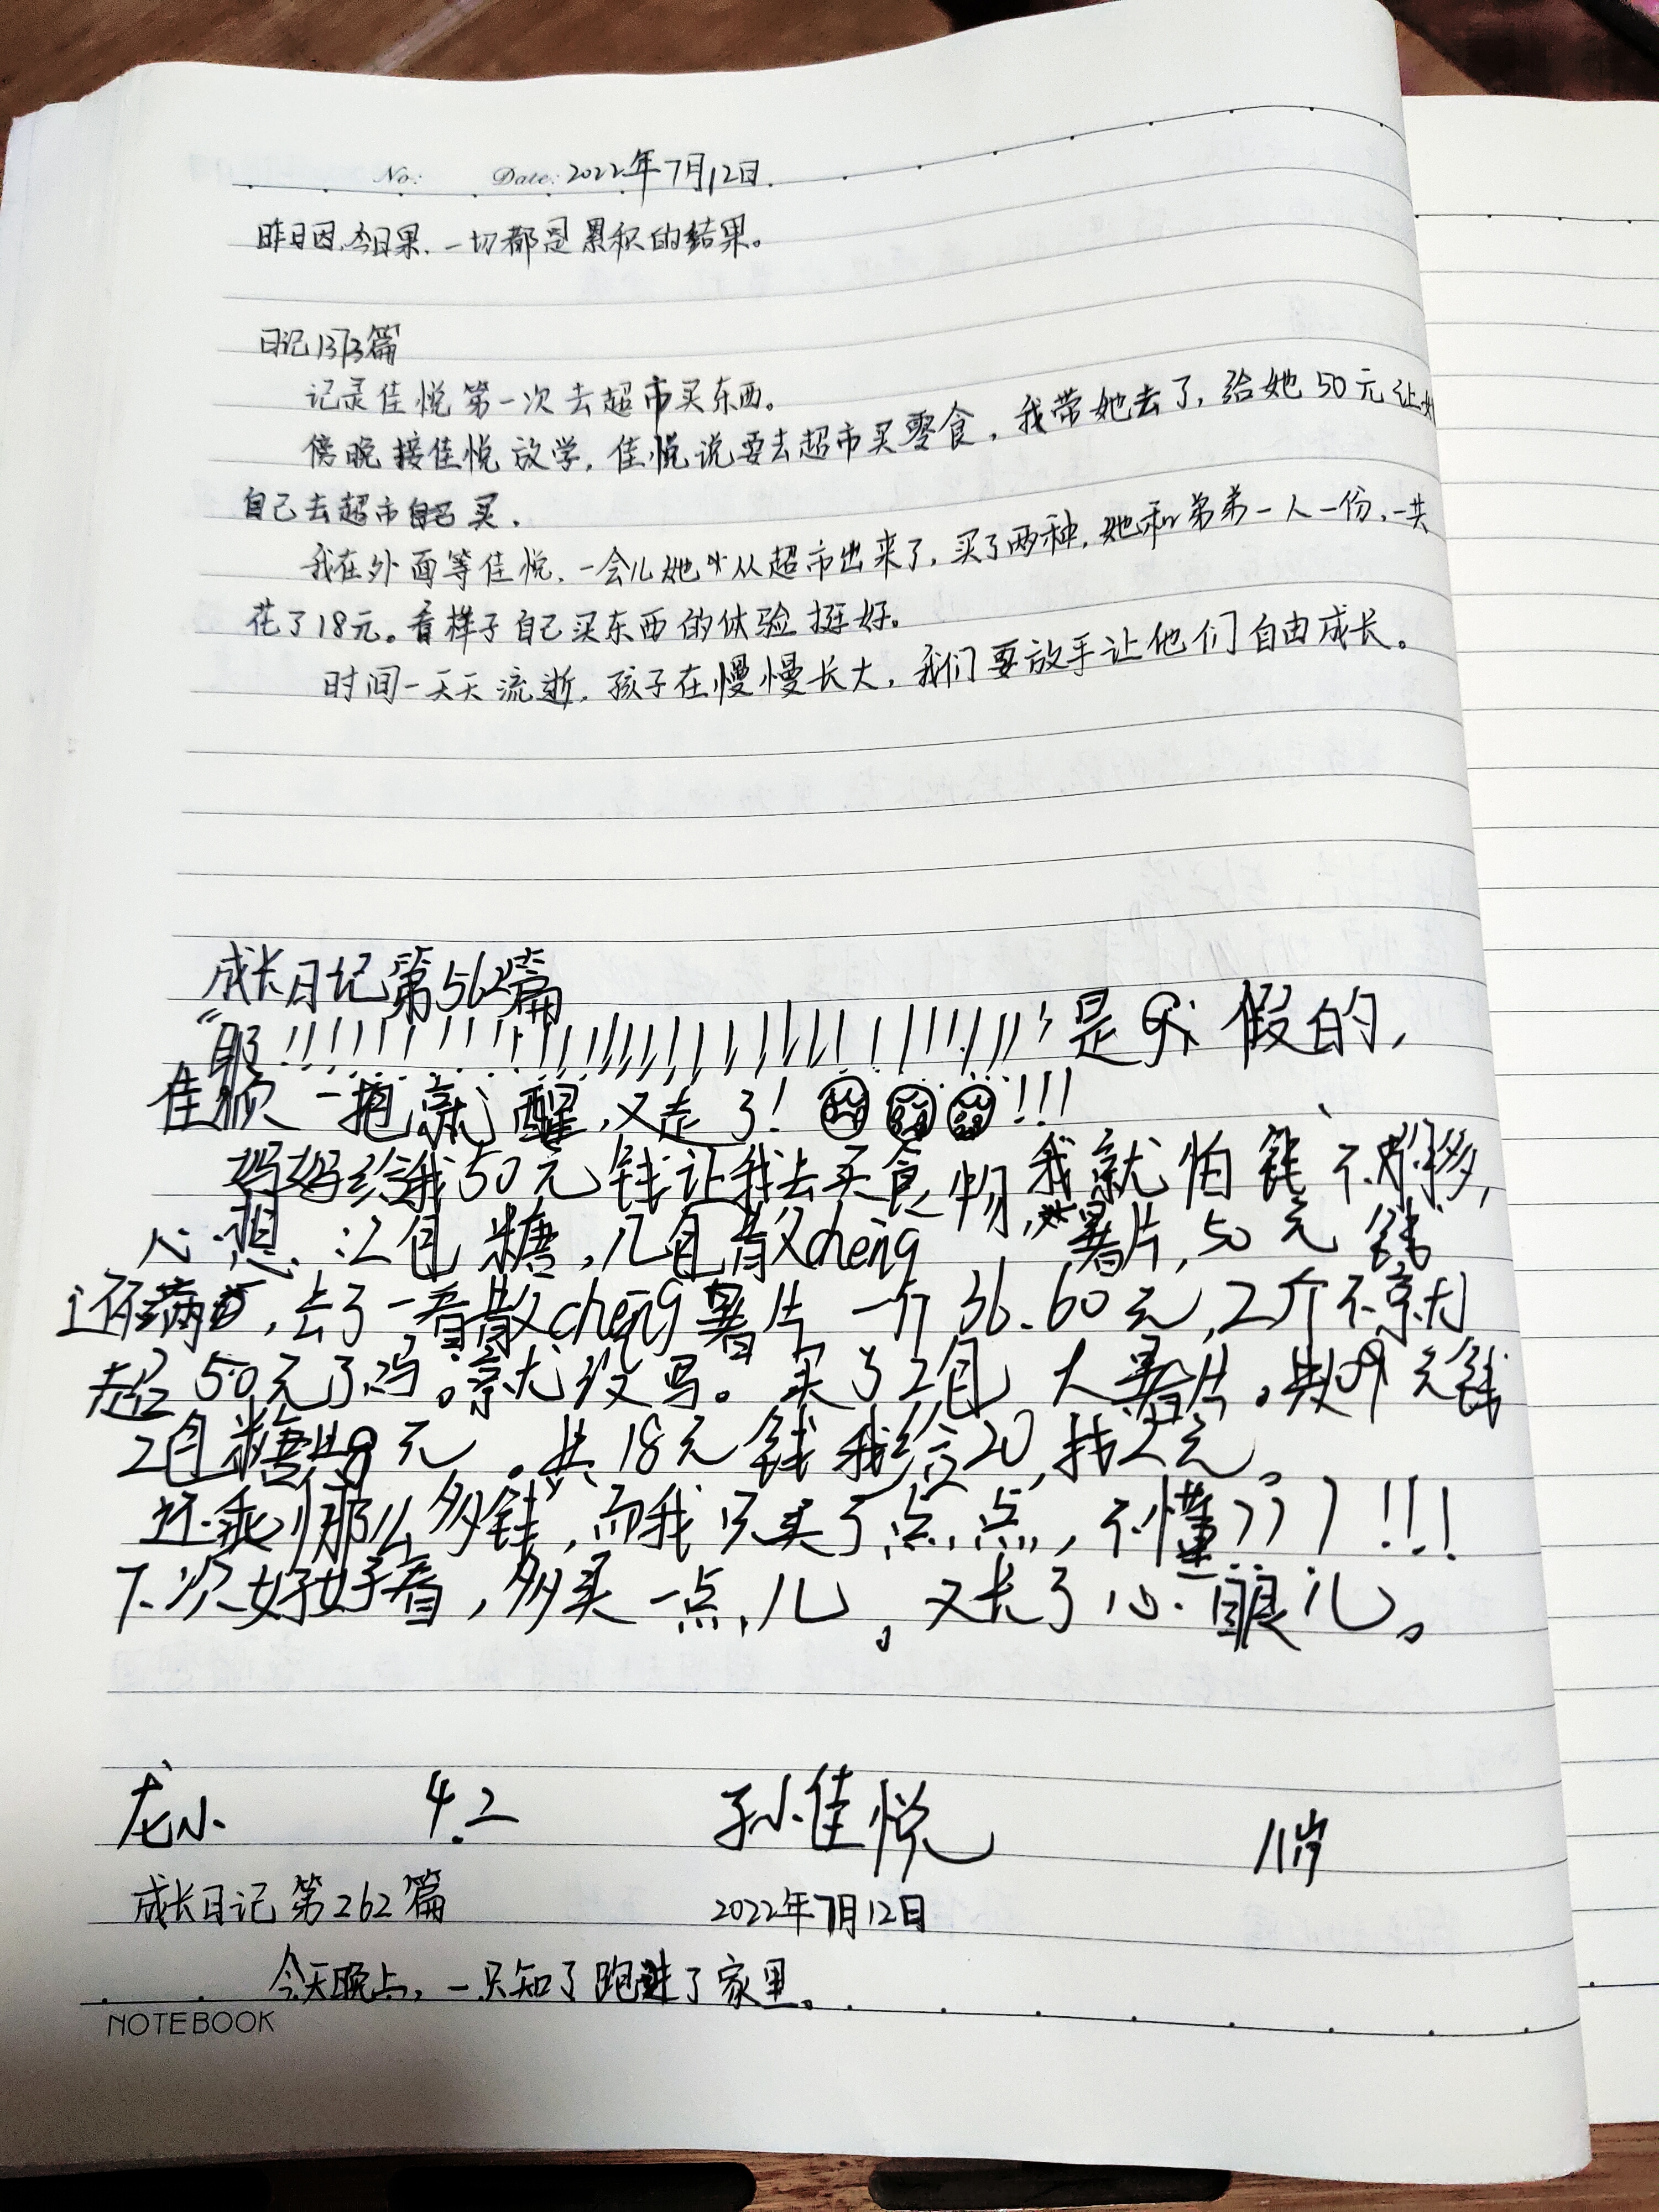 No: Date: 2022年7月12日.
昨日因,今日果,一切都是累积的结果。
日记1373篇
记录佳悦第一次去超市买东西。
傍晚接佳悦放学,佳悦说要去超市买零食,我带她去了,给她50元让她
自己去超市买.
我在外面等佳悦,一会儿她从超市出来了,买了两种,她和弟弟一人一份,一共
花了18元。看样子自己买东西的体验挺好。
时间一天天流逝,孩子在慢慢长大,我们要放手让他们自由成长。
成长日记第562篇
是 假的,
佳顺一抱就醒,又走了!!!!
妈妈给我50元钱让我去买食物,我就怕钱不够,
心想,2包糖,几包散cheng薯片,50元钱
还不,去了一看散cheng薯片一个36.60元,2个不就
超50元了吗。就没写。买了2包大薯片。共9元钱
2包糖共9元。共18元钱我给20,找2元。
还乘那么多钱,而我只买了点点,不懂???!!!
下次好好看,多买一点儿。又长了心眼儿。
龙小 4.2 孙佳悦 11岁
成长日记第262篇 2022年7月12日
今天晚上,一只知了跑进了家里。
NOTEBOOK